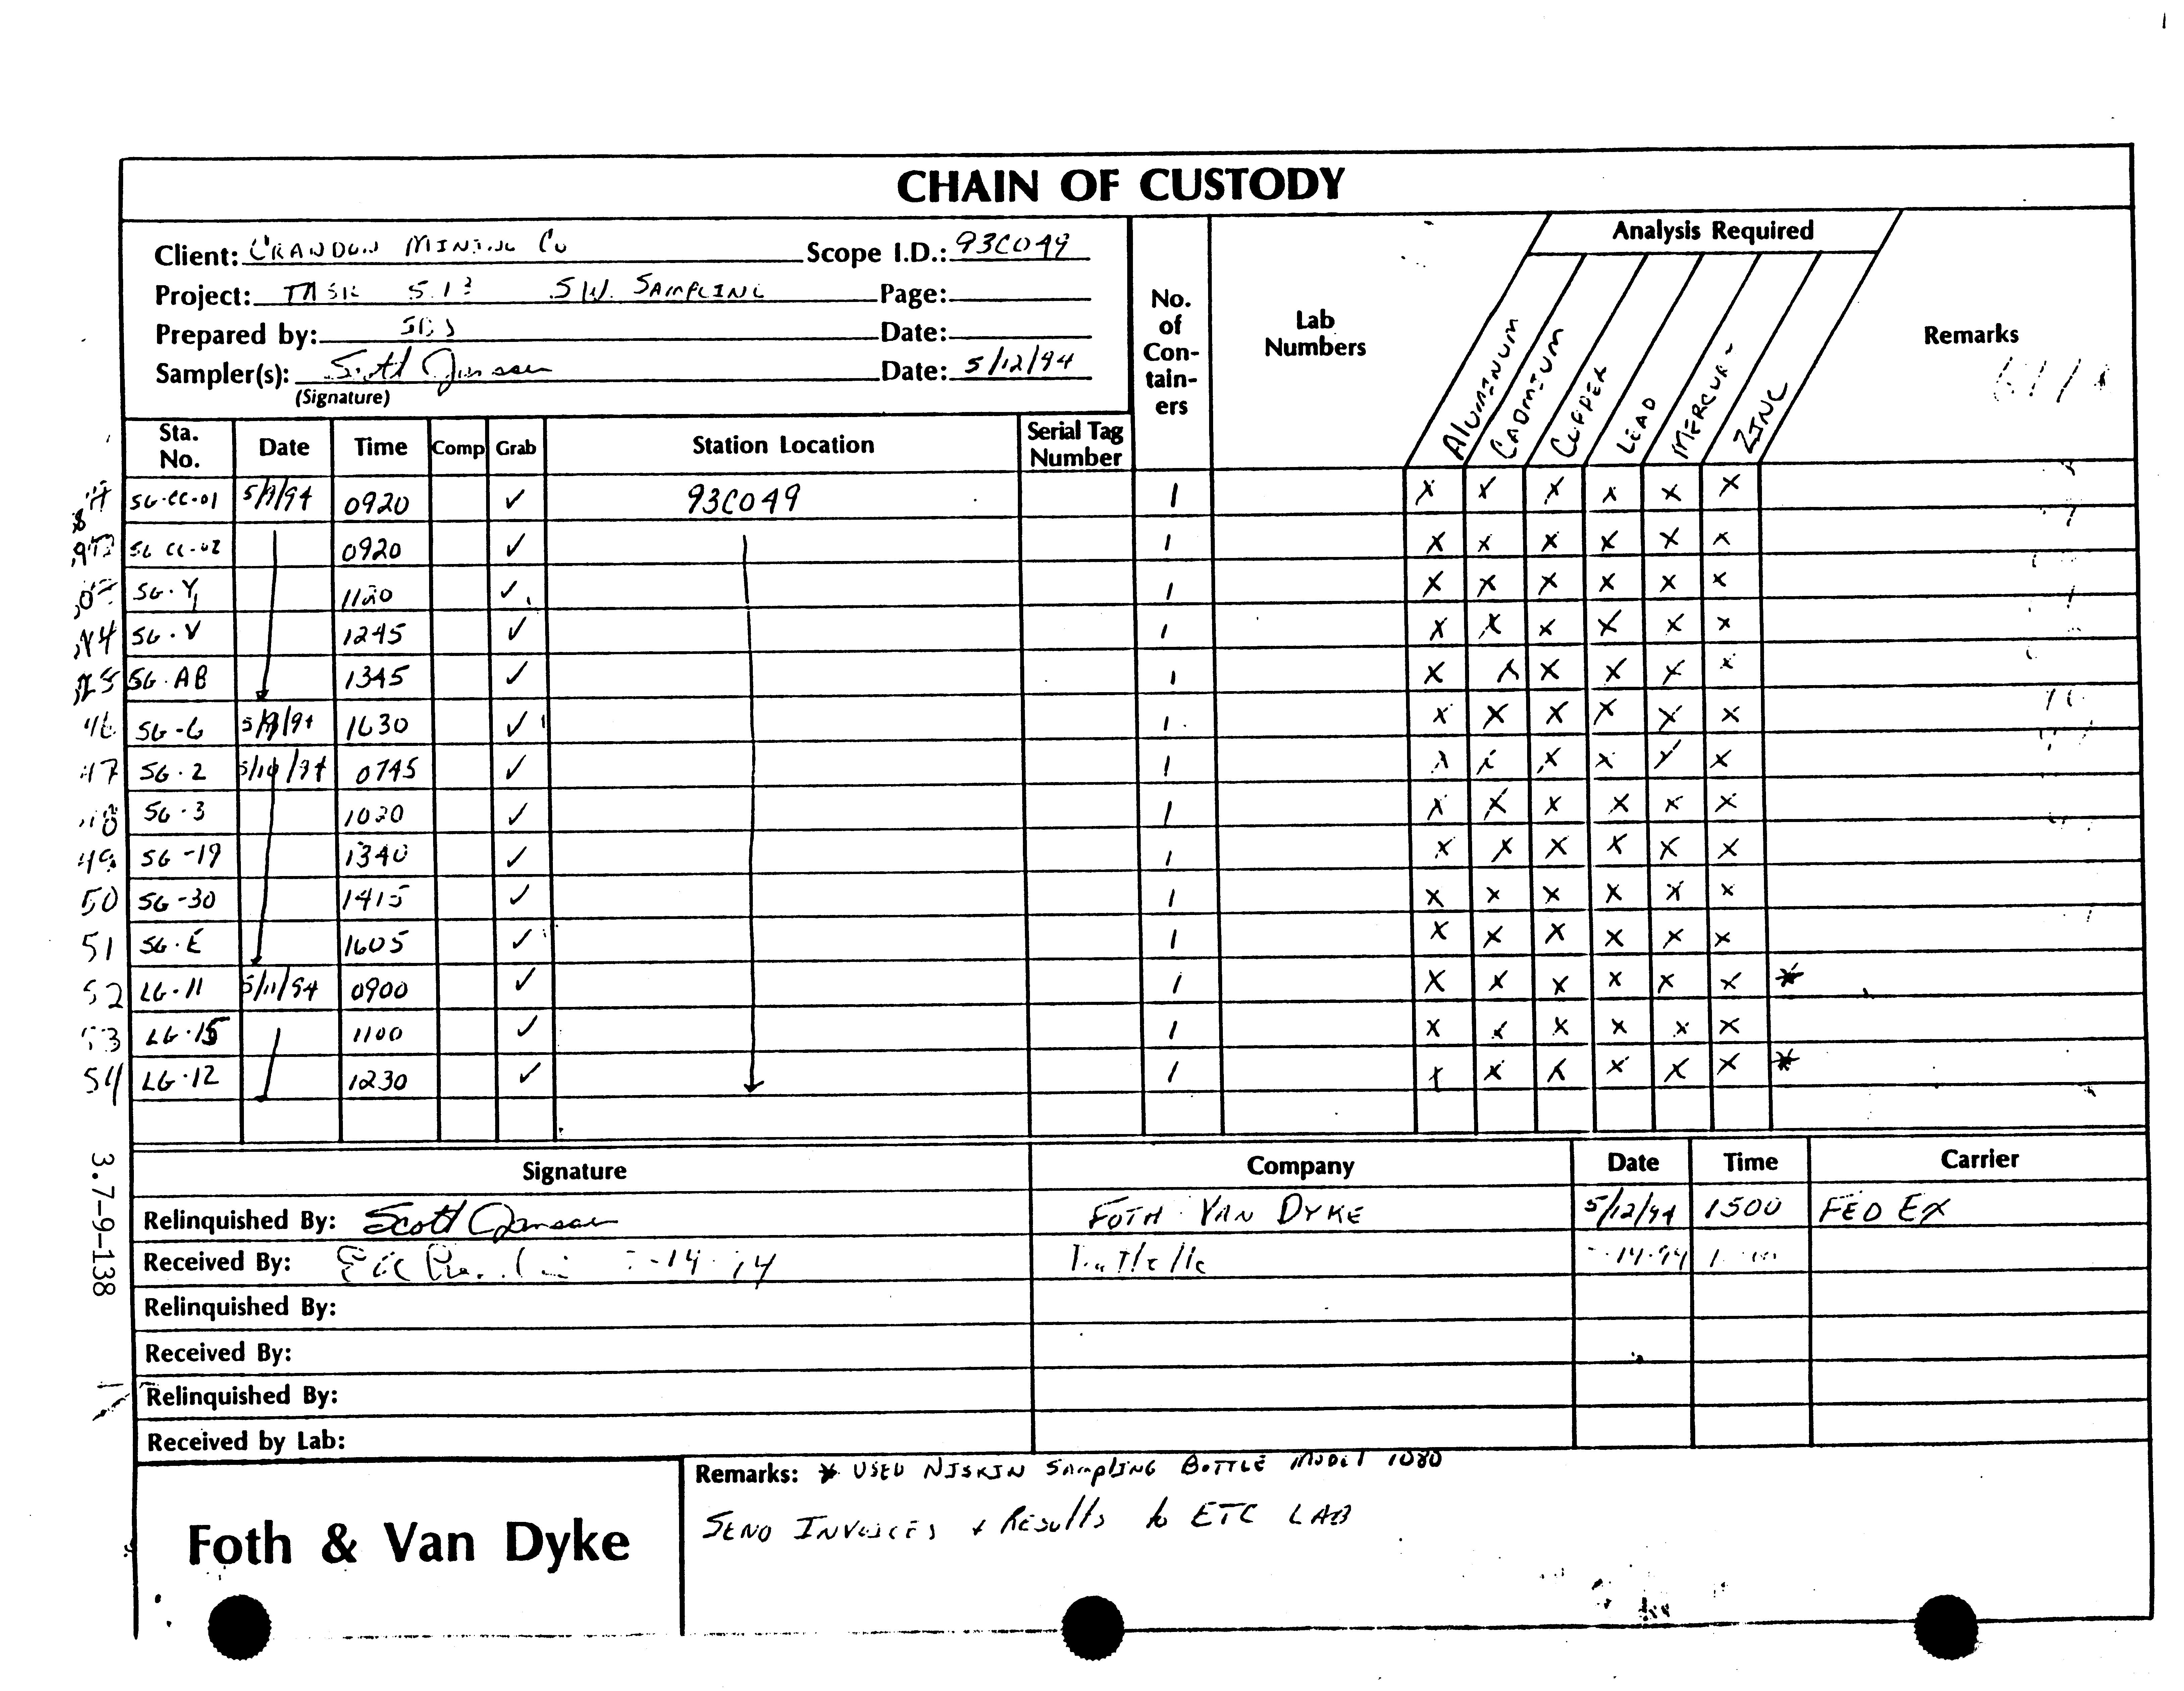 CHAIN OF CUSTODY
Client: CRANDON MINING CO Scope I.D.: 93C049
Project: TASK 5.13 SW. SAMPLING Page:
Prepared by: Date:
Sampler(s): Scott Jansen Date: 5/12/94
(Signature)
No. of Con- tain- ers
Lab Numbers
Analysis Required
Aluminum CADMIUM COPPER LEAD ZINC
Remarks
Sta. No. Date Time Comp Grab Station Location Serial Tag Number
SG-CC-01 0920 ✓ 93C049 1 X X X X X X
SG CC-02 0920 ✓ 1 X X X X X X
SG-Y 1120 ✓ 1 X X X X X X
SG-V 1245 ✓ 1 X X X X X X
SG-AB 1345 ✓ 1 X X X X X X
46 SG-6 1630 ✓ 1 X X X X X X
47 SG-2 0745 ✓ 1 X X X X X X
SG-3 1020 ✓ 1 X X X X X X
49 SG-19 1340 ✓ 1 X X X X X X
50 SG-30 1415 ✓ 1 X X X X X X
51 SG-E 1605 ✓ 1 X X X X X X
52 LG-11 5/11/94 0900 ✓ 1 X X X X X X *
53 LG-15 1100 ✓ 1 X X X X X X
54 LG-12 1230 ✓ 1 X X X X X X *
3.7-9-138
Signature Company Date Time Carrier
Relinquished By: Scott Jansen FOTH VAN DYKE 5/12/94 1500 FED EX
Received By: Eric
Relinquished By:
Received By:
Relinquished By:
Received by Lab:
Remarks: * USED NISKIN SAMPLING BOTTLE MODEL 1080
SEND INVOICES + Results to ETC LAB
Foth & Van Dyke